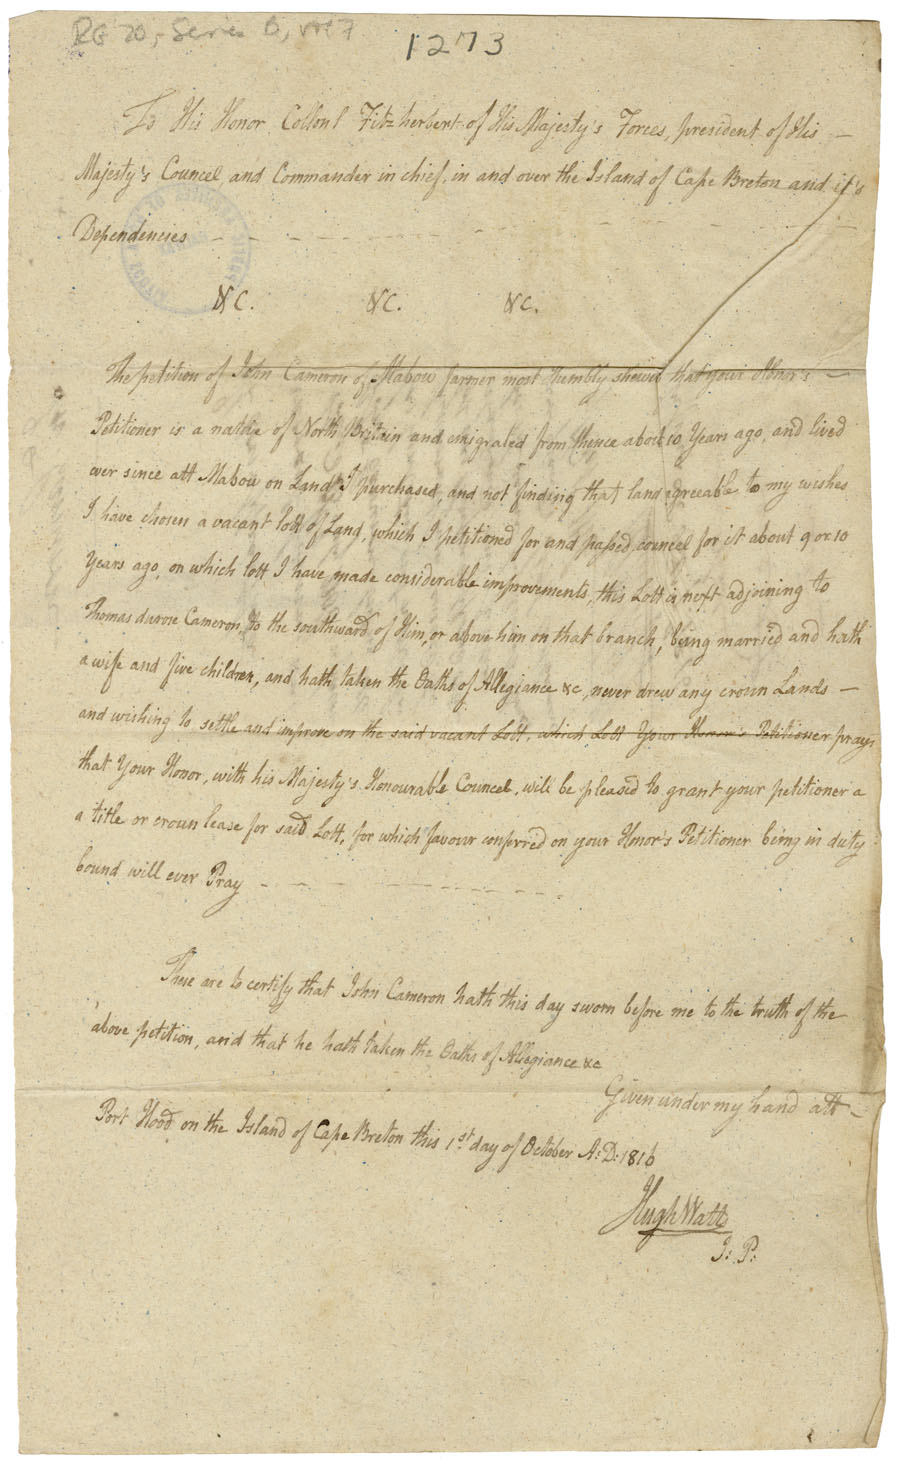 RG 20, Series B, Vol 7
1273
To His Honor Collonl Fitzherbert of His Majesty's Forces, president of His
Majesty's Councel and Commander in chief, in and over the Island of Cape Breton and it's
Dependencies
&C. &C. &C.
The petition of John Cameron of Mabow farmer most Humbly shewes that your Honor's
Petitioner is a native of North Britain and emigrated from thence about 10 Years ago, and lived
ever since att Mabow on Land I purchased, and not finding that land agreeable to my wishes
I have chosen a vacant lott of Land, which I petitioned for and passed councel for it about 9 or 10
Years ago, on which lott I have made considerable improvements, this Lott is next adjoining to
Thomas Cameron, to the southward of Him, or above him on that branch, being married and hath
a wife and five children, and hath taken the Oaths of Allegiance &c, never drew any crown Lands
and wishing to settle and improve on the said vacant Lott, which Lott Your Honor's Petitioner prays
that Your Honor, with his Majesty's Honourable Councel, will be pleased to grant your petitioner a
a title or crown lease for said Lott, for which favour conferred on your Honor's Petitioner being in duty
bound will ever Pray
These are to certify that John Cameron hath this day sworn before me to the truth of the
above petition, and that he hath taken the Oaths of Allegiance &c
Given under my hand att
Port Hood on the Island of Cape Breton this 1st day of October A:D: 1816
Hugh Watts
J: P: